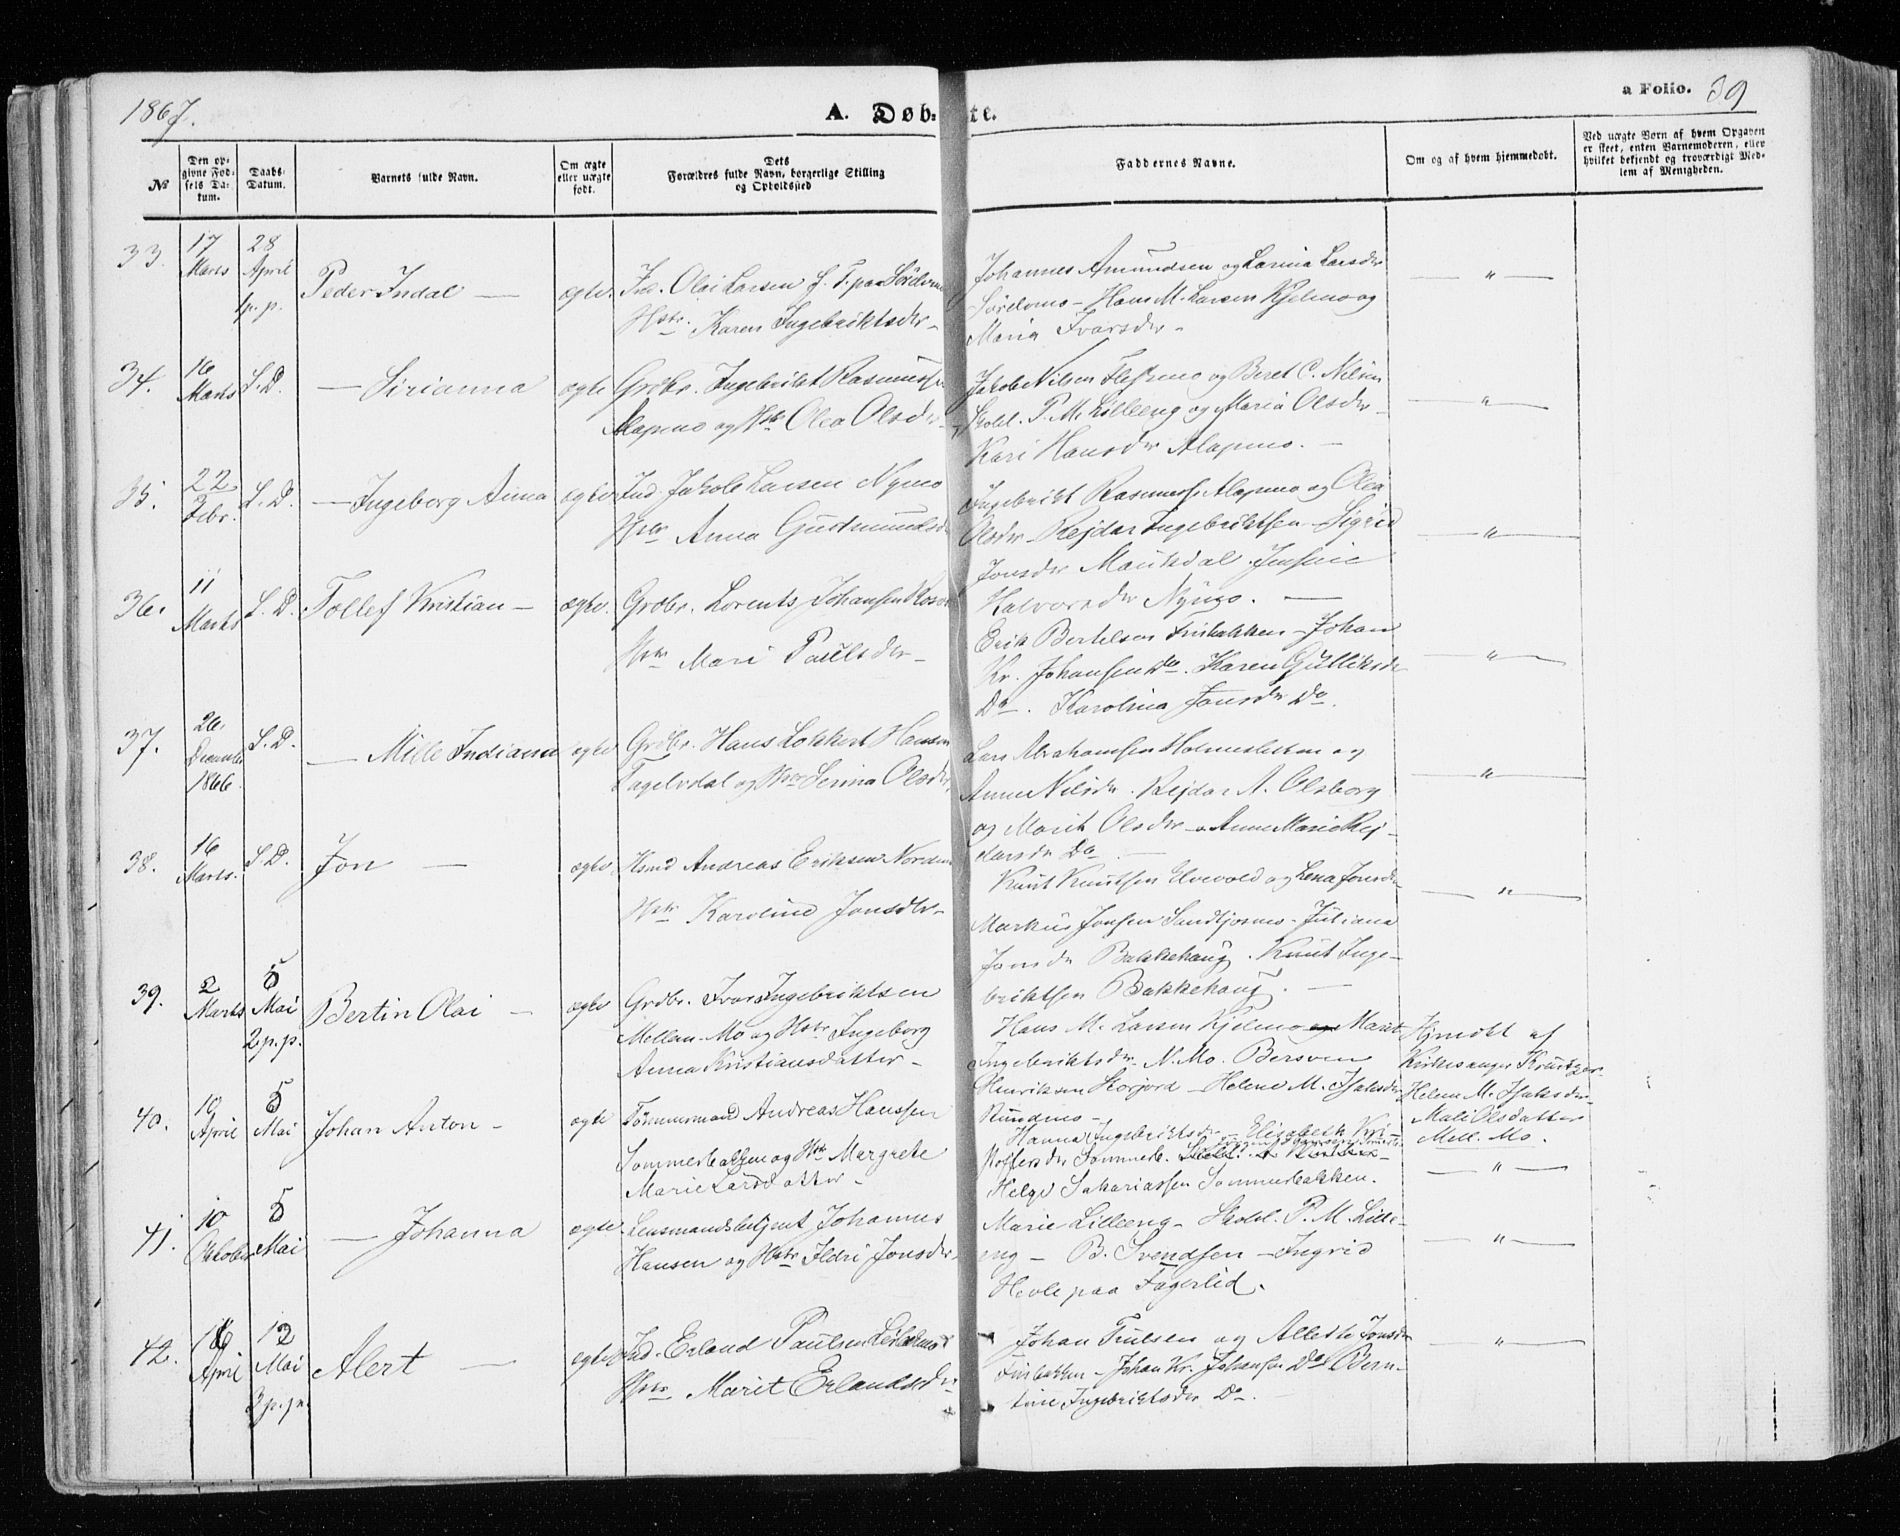 1867.
A. Døbte.
a Folio. 39
No
Den opgivne Fødsels Datum.
Daabs-Datum.
Barnets fulde Navn.
Om ægte eller uægte født.
Dets Forældres fulde Navn, borgerlige Stilling og Opholdssted
Faddernes Navne.
Om og af hvem hjemmedøbt.
Ved uægte Børn af hvem Opgaven er skeet, enten Barnemoderen, eller hvilket bekjendt og troværdigt Medlem af Menigheden.
33. 17 Marts 28 April 1 p. p. Peder Indal — ægte.
Ind. Olai Larsen
Hstr. Karen Ingebriktsdr -
Johannes Amundsen og Larina Larsdr
Sørdmo - Hans M. Larsen Kjelmo og
Maria Ivarsdr -
— " —
34. 16 Marts S. D. — Sirianna ægte
Grdbr. Ingebrikt Rasmussen
Alapmo og Hstr Olea Olsdr -
Jakob Nilsen Fleskmo og Beret C. Nilsen
Skolel. P. M. Lilleeng og Maria Olsdr -
Kari Hansdr Alapmo. —
— " —
35. 22 Febr. S. D. — Ingeborg Anna ægte
Ind. Jakob Larsen Nymo
Hstr Anna Gudmundsdr
Ingebrikt Rasmuss. Alapmo og Olea
Olsdr - Rejdar Ingebriktsen - Sigrid
Jonsdr Mauksdal. Jensine
Halvorsdr Nymo. —
— " —
36. 11 Marts S. D. Tollef Kristian - ægte.
Grdbr. Lorents Johansen
Hstr Mari Paulsdr -
Erik Bertelsen Finbakken - Johan
Kr. Johansen Do. Karen Gulliksdr
Do. Karolina Jonsdr Do.
— " —
37. 26. December 1866. S. D. — Mille Indianna ægte
Grdbr. Hans Lokkert Hansen
Fagelvdal og Hstr Serina Olsdr,
Lars Abrahamsen Holmesletten og
Anne Nilsdr. Rejdar A. Olsborg
og Marit Olsdr - Anne Marie Rej-
darsdr Do —
— " —
38. 16 Marts. S. D. Jon — ægte
Hsmd Andreas Eriksen Nordmo
Hstr Karoline Jonsdtr -
Knut Knutsen Elvevold og Lena Jonsdr -
Markus Jonsen Sandtjørnmo - Juliana
Jonsdr Bakkehaug. Knut Inge-
briktsen Bakkehaug. —
— " —
39. 2 Marts 5 Mai 2 p. p. Bertin Olai — ægte
Grdbr. Ivar Ingebriktsen
Mellem-Mo og Hstr Ingeborg
Anna Kristiansdatter -
Hans M. Larsen Kjelmo og Marit
Ingebriktsdr. N. Mo. Bersven
Henriksen Storjord - Helene M. Isaksdr
Rundmo -
Hjmdøbt af
Kirkesanger Kreutzer
Helene M. Isaksdr
Mali Olsdatter
Mell. Mo.
40. 10 April 5 Mai Johan Anton - ægte
Tømmermand Andreas Hanssen
Sommerbakken og Hstr Margrete
Marie Larsdatter -
Hanna Ingebriktsdr - Elisabeth Kri-
stoffersdr Sommerb.
Helge Sakariassen Sommerbakken.
— " —
41. 10 Oktober 5 Mai — Johanna ægte
Lensmandsbetjent Johannes
Hansen og Hstr Ildri Jonsdr.
Marie Lilleeng - Skolel. P. M. Lille-
eng - B. Svendsen - Ingrid
Hevle paa Fagerlid.
— " —
42. 16 April 12 Mai 3 p. p. Alert — ægte
Ind. Erland Paulsen
Hstr Marit Erlandsdr
Johan Trulsen og Allette Jonsdr
Finbakken - Johan Kr. Johansen Do Bern-
tine Ingebriktsdr Do -
— " —